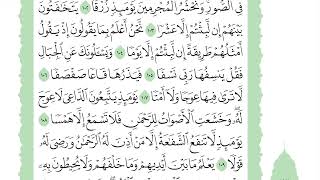 فِي ٱلصُّورِ وَنَحۡشُرُ ٱلۡمُجۡرِمِينَ يَوۡمَئِذٖ زُرۡقٗا ١٠٢ يَتَخَٰفَتُونَ
بَيۡنَهُمۡ إِن لَّبِثۡتُمۡ إِلَّا عَشۡرٗا ١٠٣ نَّحۡنُ أَعۡلَمُ بِمَا يَقُولُونَ إِذۡ يَقُولُ
أَمۡثَلُهُمۡ طَرِيقَةً إِن لَّبِثۡتُمۡ إِلَّا يَوۡمٗا ١٠٤ وَيَسۡـَٔلُونَكَ عَنِ ٱلۡجِبَالِ
فَقُلۡ يَنسِفُهَا رَبِّي نَسۡفٗا ١٠٥ فَيَذَرُهَا قَاعٗا صَفۡصَفٗا ١٠٦
لَّا تَرَىٰ فِيهَا عِوَجٗا وَلَآ أَمۡتٗا ١٠٧ يَوۡمَئِذٖ يَتَّبِعُونَ ٱلدَّاعِيَ لَا عِوَجَ
لَهُۥۖ وَخَشَعَتِ ٱلۡأَصۡوَاتُ لِلرَّحۡمَٰنِ فَلَا تَسۡمَعُ إِلَّا هَمۡسٗا ١٠٨
يَوۡمَئِذٖ لَّا تَنفَعُ ٱلشَّفَٰعَةُ إِلَّا مَنۡ أَذِنَ لَهُ ٱلرَّحۡمَٰنُ وَرَضِيَ لَهُۥ
قَوۡلٗا ١٠٩ يَعۡلَمُ مَا بَيۡنَ أَيۡدِيهِمۡ وَمَا خَلۡفَهُمۡ وَلَا يُحِيطُونَ بِهِۦ